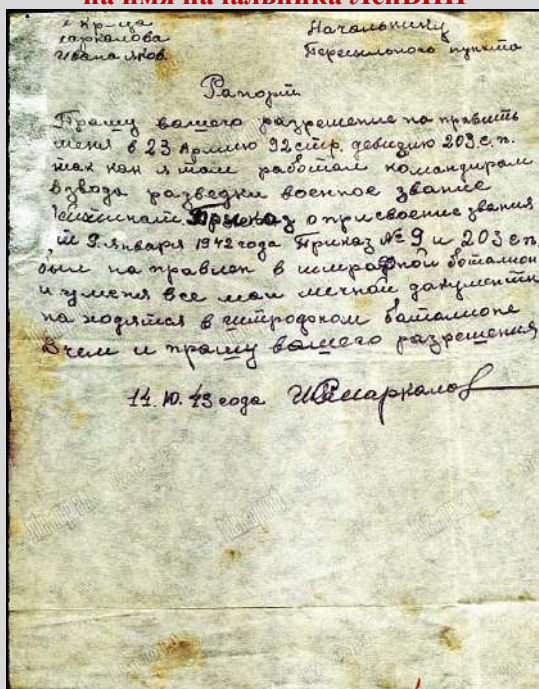 на имя начальника ЛенВПП
Начальнику
Пересыльного пункта
Рапорт
Прашу вашего разрешение на править
меня в 23 Армию 92 стр. девизию 203 с.п.
так как я там работал командирам
Взвода разведки военное звание
Приказ о присвоение звания
9 января 1942 года Приказ № 9 и 203 с п.
был на правлен в штрафной баталион
и у меня все маи личной дакументы
на ходятся в баталионе
В чем и прашу вашего разрешения
14.10.43 года